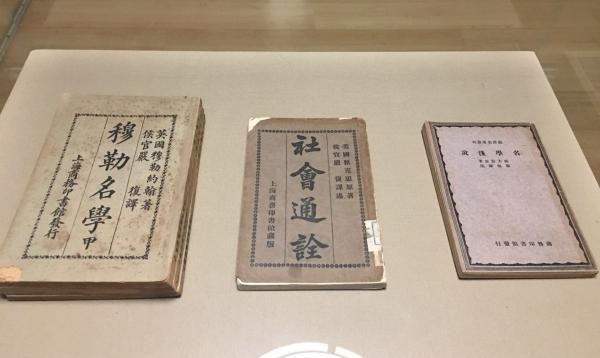 英國穆勒約翰著
侯官嚴 復譯
穆勒名學 甲
上海商務印書館發行
英國甄克思原著
侯官嚴 復譯述
社會通詮
上海商務印書館藏版
名學淺說
商務印書館發行